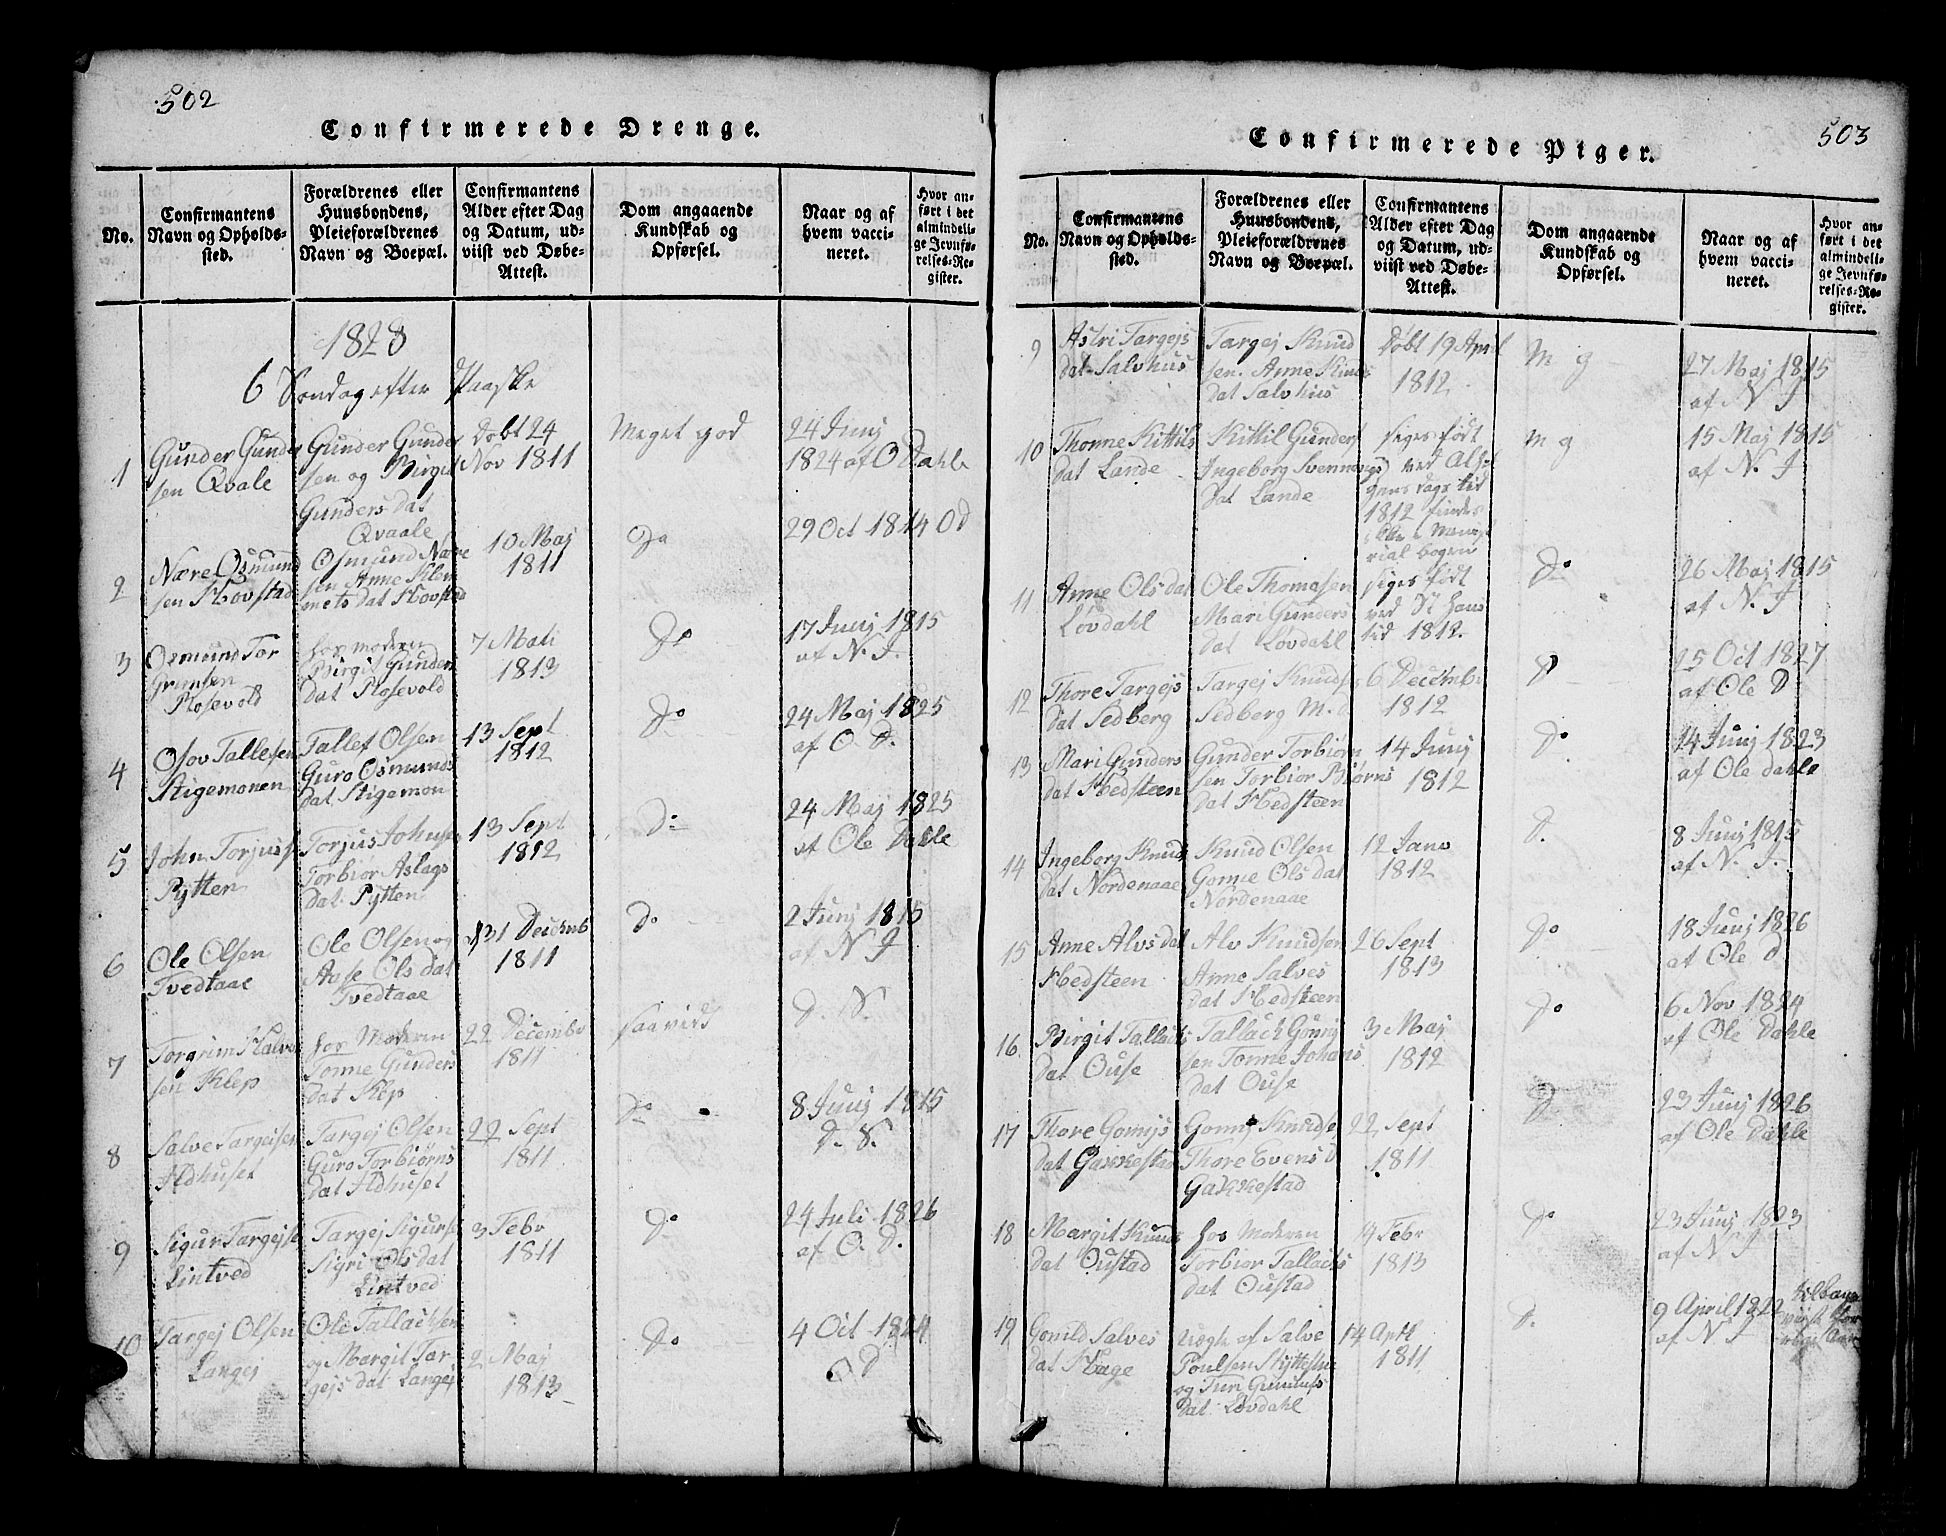 502
Confirmerede Drenge.
No.
Confirmantens
Navn og Opholds-
sted.
Forældrenes eller
Huusbondens,
Pleieforældrenes
Navn og Boepæl.
Confirmantens
Alder efter Dag
og Datum, ud-
viist ved Døbe-
Attest.
Dom angaaende
Kundskab og
Opførsel.
Naar og af
hvem vacci-
neret.
Hvor an-
ført i det
almindeli-
ge Jevnfø-
relses-Re-
gister.
1828
6 Søndag efter Paaske
1
Gunder Gunder
sen Qvale
Gunder Gunder
sen og Birgit
Gunders dat
Qvaale
Døbt 24
Nov 1811
Meget god
24 Junj
1824 af O Dahle
2
Nære Osmund
sen Hovstad
Osmund Nære
sen Anne Klem
mets dat Hovstad
10 Maj
1811
Do
29 Oct 1814 O D
3
Osmund Tor
Grimsen
Rosevold
hos moderen
Birgit Gunders
dat Rosevold
7 Mati
1813
Do
17 Junj 1815
af N. J.
4
Osov Tallefsen
Stigemonen
Tallef Olsen
Guro Osmunds
dat Stigemon
13 Sept
1812
Do
24 Maj 1825
af O. D.
5
John Torjuss
Pytten
Torjus Johns
Torbior Aslags
dat Pytten
13 Sept
1812
Do
24 Maj 1825
af Ole Dahle
6
Ole Olsen
Tvedtaae
Ole Olsen og
Aase Ols dat
Tvedtaae
31 Decemb
1811
Do
2 Junj 1815
af N J
7
Torgrim Halvor
sen Klep
hos Moderen
Tonne Gunders
dat Klep
22 Decembr
1811
saavidt
D. S.
8
Salve Targeisen
Ildhuset
Targej Olsen
Guro Torbiørns
dat Ildhuset
22 Sept
1811
Do
8 Junj 1815
D. S.
9
Sigur Targejse
Lintved
Targej Sigurse
Sigri Ols dat
Lintved
3 Febr
1811
Do
24 Juli 1826
af O. D.
10
Targej Olsen
Langej
Ole Tallachsen
og Margit Tar
gejs dat Langej
2 Maj
1813
Do
4 Oct 1824
O D
503
Confirmerede Piger.
No.
Confirmantens
Navn og Opholds-
sted.
Forældrenes eller
Huusbondens,
Pleieforældrenes
Navn og Boepæl.
Confirmantens
Alder efter Dag
og Datum, ud-
viist ved Døbe-
Attest.
Dom angaaende
Kundskab og
Opførsel.
Naar og af
hvem vacci-
neret.
Hvor an-
ført i det
almindeli-
ge Jevnfø-
relses-Re-
gister.
9
Astri Targejs
dat Salvhus
Targej Knud
sen. Anne Knuds
dat Salvhus
Døbt 19 April
1812
M g
27 Maj 1815
af N J
10
Thonne Kittils
dat Lande
Kittil Gunders
Ingeborg Svennungs
dat Lande
siges født
ved Alhel
gens dags tid
1812 findes
ikke i Minist
rial bogen
m g
15 Maj 1815
af N. J
11
Anne Olsdat
Lovdahl
Ole Thomasen
Mari Gunders
dat Lovdahl
siges født
ved St Hans
tid 1812.
Do
26 Maj 1815
af N. J
12
Thore Targejs
dat Sedberg
Targej Knuds
Sedberg M.
6 Decembr
1812
D
25 Oct 1827
af Ole D
13
Mari Gunders
dat Hedsteen
Gunder Torbiørn
sen Torbior Biørns
dat Hedsteen
14 Junj
1812
Do
14 Junj 1823
af Ole Dahle
14
Ingeborg Knuds
dat Nordenaae
Knud Olsen
Gonne Ols dat
Nordenaae
12 Jano
1812
D.
8 Junj 1815
af N. J.
15
Anne Alvs dat
Hedsteen
Alv Knudsen
Anne Salves
dat Hedsteen
26 Sept
1813
Do
18 Junj 1826
af Ole D
16
Birgit Tallachs
dat Ouse
Tallach Gonnj
sen Tonne Johans
dat Ouse
3 Maj
1812
Do
6 Nov 1824
af Ole Dahle
17
Thore Gonnjs
dat Gakkestad
Gonnj Knudse
Thore Evens D
Gakkestad
22 Sept
1811
D
23 Junj 1826
af Ole Dahle
18
Margit Knuds
dat Oustad
hos Moderen
Torbior Tallachs
dat Oustad
19 Febr
1813
Do
23 Junj 1823
af N J
19
Gonild Salves
dat Hage
Uægte af Salve
Poulsen
og Turi
dat Lovdahl
14 Aprl
1811
D.
9 April 1822
af N J
tilbage
viist for
rige Aar